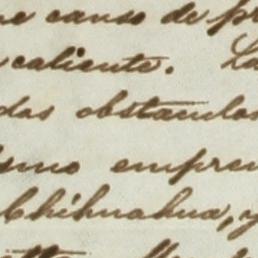 e causo de pr
caliente. La
das obstaculos
ismo empren
Chihuahua, y